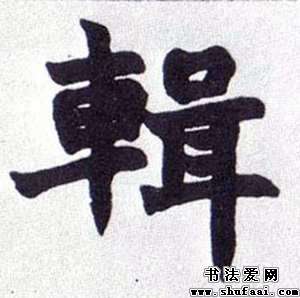 輯
书法爱网
www.shufaai.com